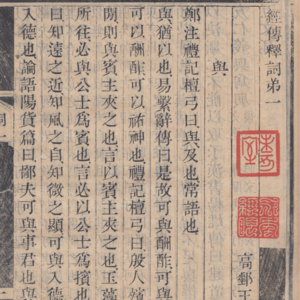 經傳釋詞弟一
高郵王
與
鄭注禮記檀弓曰與及也常語也
與猶以也易繫辭傳曰是故可與酬酢可與
可以酬酢可以祐神也禮記檀弓曰殷人殯
閒則與賓主夾之也言以賓主夾之也玉藻
所往必與公士為賓也言必以公士為擯也
曰知遠之近知風之自知微之顯可與入德
入德也論語陽貨篇曰鄙夫可與事君也與